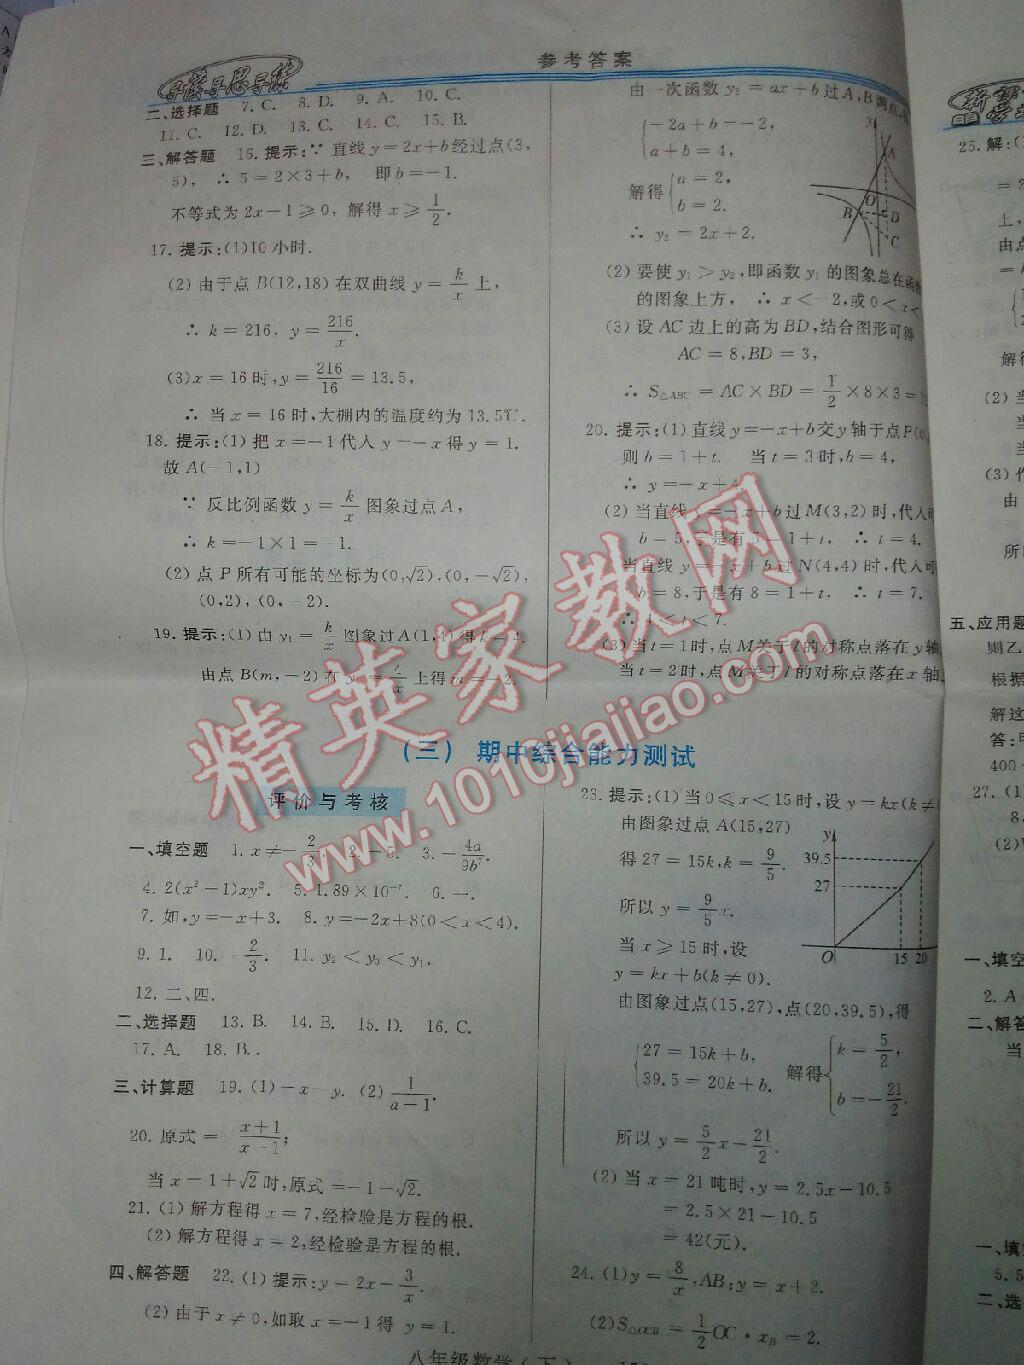 导读导思导练
参考答案
二、选择题 7. C. 8. D. 9. A. 10. C.
11. C. 12. D. 13. C. 14. C. 15. B.
三、解答题 16. 提示:∵ 直线 y=2x+b 经过点(3,
5), ∴ 5=2×3+b, 即 b=-1.
不等式为 2x-1≥0, 解得 x≥1/2.
17. 提示:(1)10小时.
(2) 由于点 B(12,18) 在双曲线 y=k/x 上,
∴ k=216, y=216/x.
(3)x=16时,y=216/16=13.5,
∴ 当 x=16时,大棚内的温度约为13.5℃.
18. 提示:(1) 把 x=-1代入 y=-x 得 y=1.
故 A(-1,1)
∵ 反比例函数 y=k/x 图象过点 A,
∴ k=-1×1=-1.
(2) 点 P 所有可能的坐标为(0,√2),(0,-√2),
(0,2),(0,-2).
19. 提示:(1) 由 y₁=k/x 图象过 A(1,4) 得 k=4.
由点 B(m,-2) 在 y₁=4/x 上得 m=-2.
由一次函数 y₂=ax+b 过 A,B 两点,
{-2a+b=-2,
a+b=4,
解得{a=2,
b=2.
∴ y₂=2x+2.
y
A
O
B
D
C
(2) 要使 y₁>y₂,即函数 y₁ 的图象总在函数
的图象上方, ∴ x<-2,或 0<x<
(3) 设 AC 边上的高为 BD,结合图形可得
AC=8,BD=3,
∴ S△ABC=AC×BD=1/2×8×3=
20. 提示:(1) 直线 y=-x+b 交 y 轴于点 P(0,
则 b=1+t. 当 t=3时,b=4,
∴ y=-x+4.
(2) 当直线 y=-x+b 过 M(3,2) 时,代入可
b=5,于是有 5=1+t, ∴ t=4.
当直线 y=-x+b 过 N(4,4) 时,代入可
b=8,于是有 8=1+t, ∴ t=7.
∴ 4<t<7.
(3) 当 t=1时,点 M 关于 l 的对称点落在 y 轴
当 t=2时,点 M 关于 l 的对称点落在 x 轴上
精英家教网
www.1010jiajiao.com
(三) 期中综合能力测试
评价与考核
一、填空题 1. x≠-2/3. 2. -5. 3. -4a/9b⁷.
4. 2(x²-1)xy². 5. 1.89×10⁻⁷. 6. 一.
7. 如,y=-x+3. 8. y=-2x+8(0<x<4).
9. 1. 10. -2/3. 11. y₂<y₃<y₁.
12. 二、四.
二、选择题 13. B. 14. B. 15. D. 16. C.
17. A. 18. B.
三、计算题 19. (1)-x-y. (2) 1/(a-1).
20. 原式=-(x+1)/(x-1);
当 x=1+√2 时,原式=-1-√2.
21. (1) 解方程得 x=7,经检验是方程的根.
(2) 解方程得 x=2,经检验是方程的根.
四、解答题 22. (1) 提示:y=2x-3/x.
(2) 由于 x≠0,如取 x=-1得 y=1.
23. 提示:(1) 当 0≤x<15时,设 y=kx(k≠
由图象过点 A(15,27)
得 27=15k,k=9/5.
所以 y=9/5x.
当 x≥15时,设
y=kx+b(k≠0).
y
39.5
27
O
15 20
由图象过点(15,27),点(20,39.5),得
{27=15k+b,
39.5=20k+b. 解得{k=5/2,
b=-21/2.
所以 y=5/2x-21/2.
(2) 当 x=21吨时,y=2.5x-10.5
=2.5×21-10.5
=42(元).
24. (1)y=8/x,AB:y=x+2.
(2)S△OCB=1/2OC·x_B=2.
八年级数学(下)
25. 解:(
五、应用题
则乙
根据
解这
400
27. (1
8.
(2)
一、填空
2. A
二、解答
当
一、填
5. 5
二、选